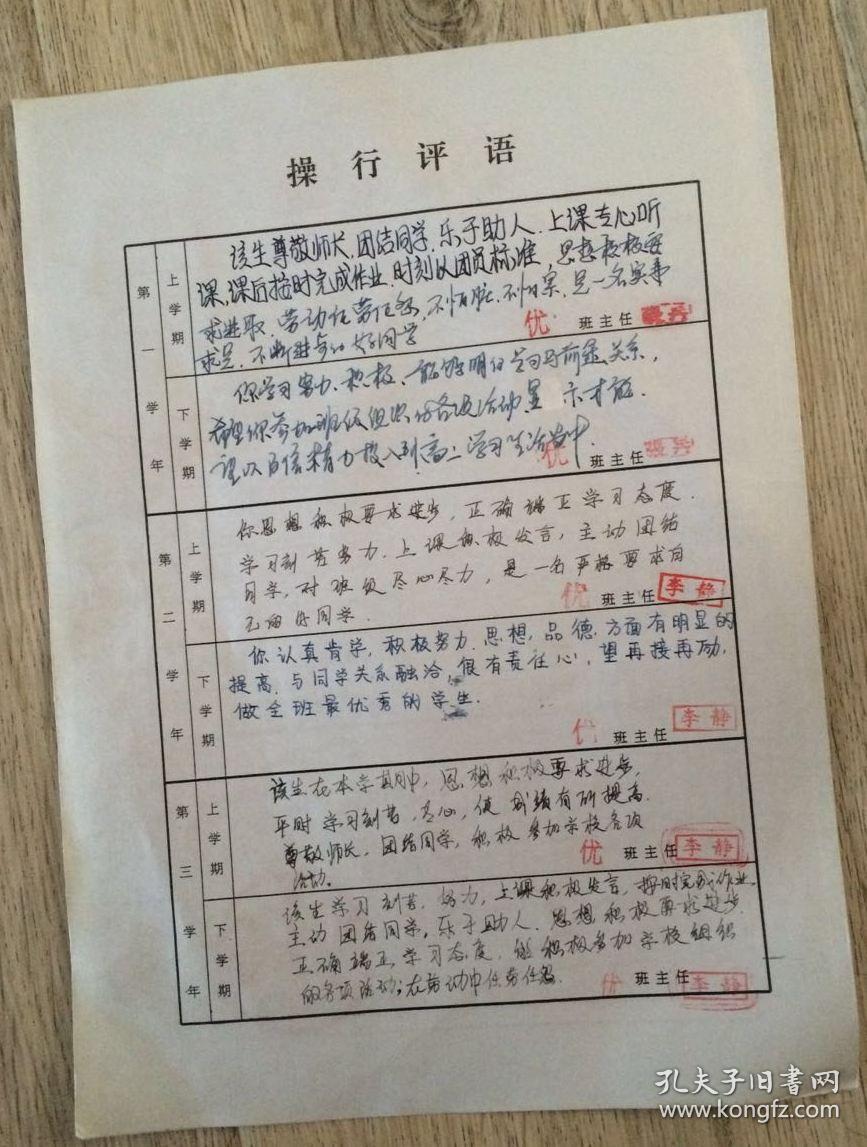 操行评语
第一学年
上学期
该生尊敬师长,团结同学,乐于助人.上课专心听
课,课后按时完成作业.时刻以团员标准,思想积极要
求进取,劳动任劳任怨,不怕脏,不怕累,是一名实事
求是,不断进步的好同学
优 班主任
下学期
你学习努力、积极、能够明白学习与前途关系,
希望你参加班级组织的各项活动,显示才能.
望以百倍精力投入到高二学习生活当中.
优 班主任
第二学年
上学期
你思想积极要求进步,正确端正学习态度.
学习刻苦努力.上课积极发言,主动团结
同学,对班级尽心尽力,是一名严格要求自
己的好同学.
优 班主任 李静
下学期
你认真肯学,积极努力.思想,品德.方面有明显的
提高.与同学关系融洽,很有责任心,望再接再励,
做全班最优秀的学生.
优 班主任 李静
第三学年
上学期
该生在本学期中,思想积极要求进步,
平时学习刻苦,专心,使成绩有所提高.
尊敬师长,团结同学,积极参加学校各项
活动。
优 班主任 李静
下学期
该生学习刻苦,努力,上课积极发言,按时完成作业.
主动团结同学,乐于助人.思想积极要求进步.
正确端正学习态度,能积极参加学校组织
的各项活动;在劳动中任劳任怨.
优 班主任 李静
孔夫子旧书网
www.kongfz.com